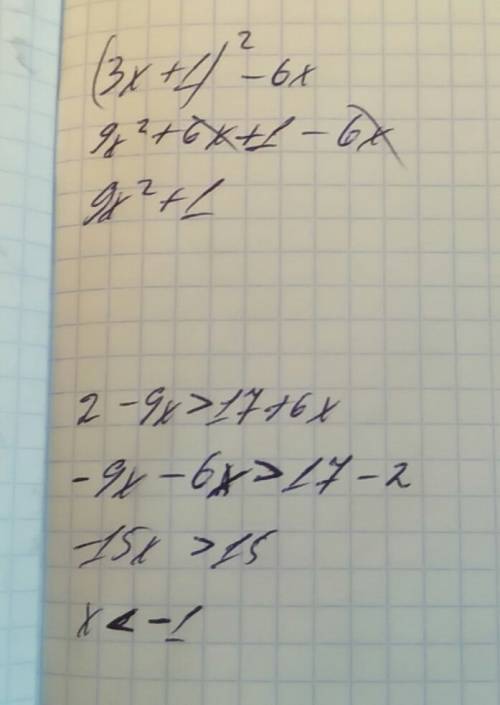 (3x+1)² - 6x
9x² + 6x + 1 - 6x
9x² + 1
2 - 9x > 17 + 6x
-9x - 6x > 17 - 2
-15x > 15
x < -1